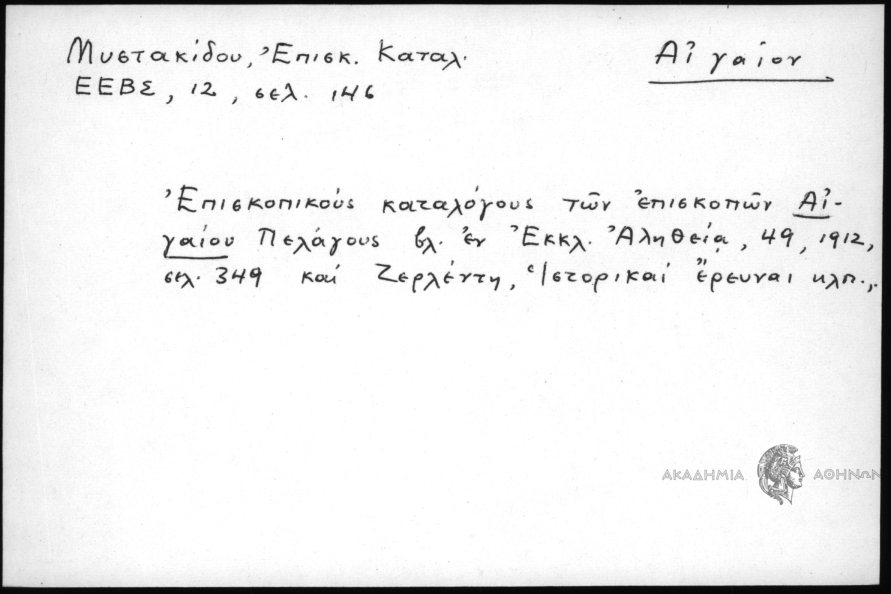 Μυστακίδου, Ἐπισκ. Καταλ.
Αἰγαίον
ΕΕΒΣ, 12, σελ. 146
Ἐπισκοπικούς καταλόγους τῶν ἐπισκοπῶν Αἰ-
γαίου Πελάγους βλ. ἐν Ἐκκλ. Ἀληθεία, 49, 1912,
σελ. 349 καί Ζερλέντη, Ἱστορικαί ἔρευναι κλπ.,.
ΑΚΑΔΗΜΙΑ ΑΘΗΝΩΝ